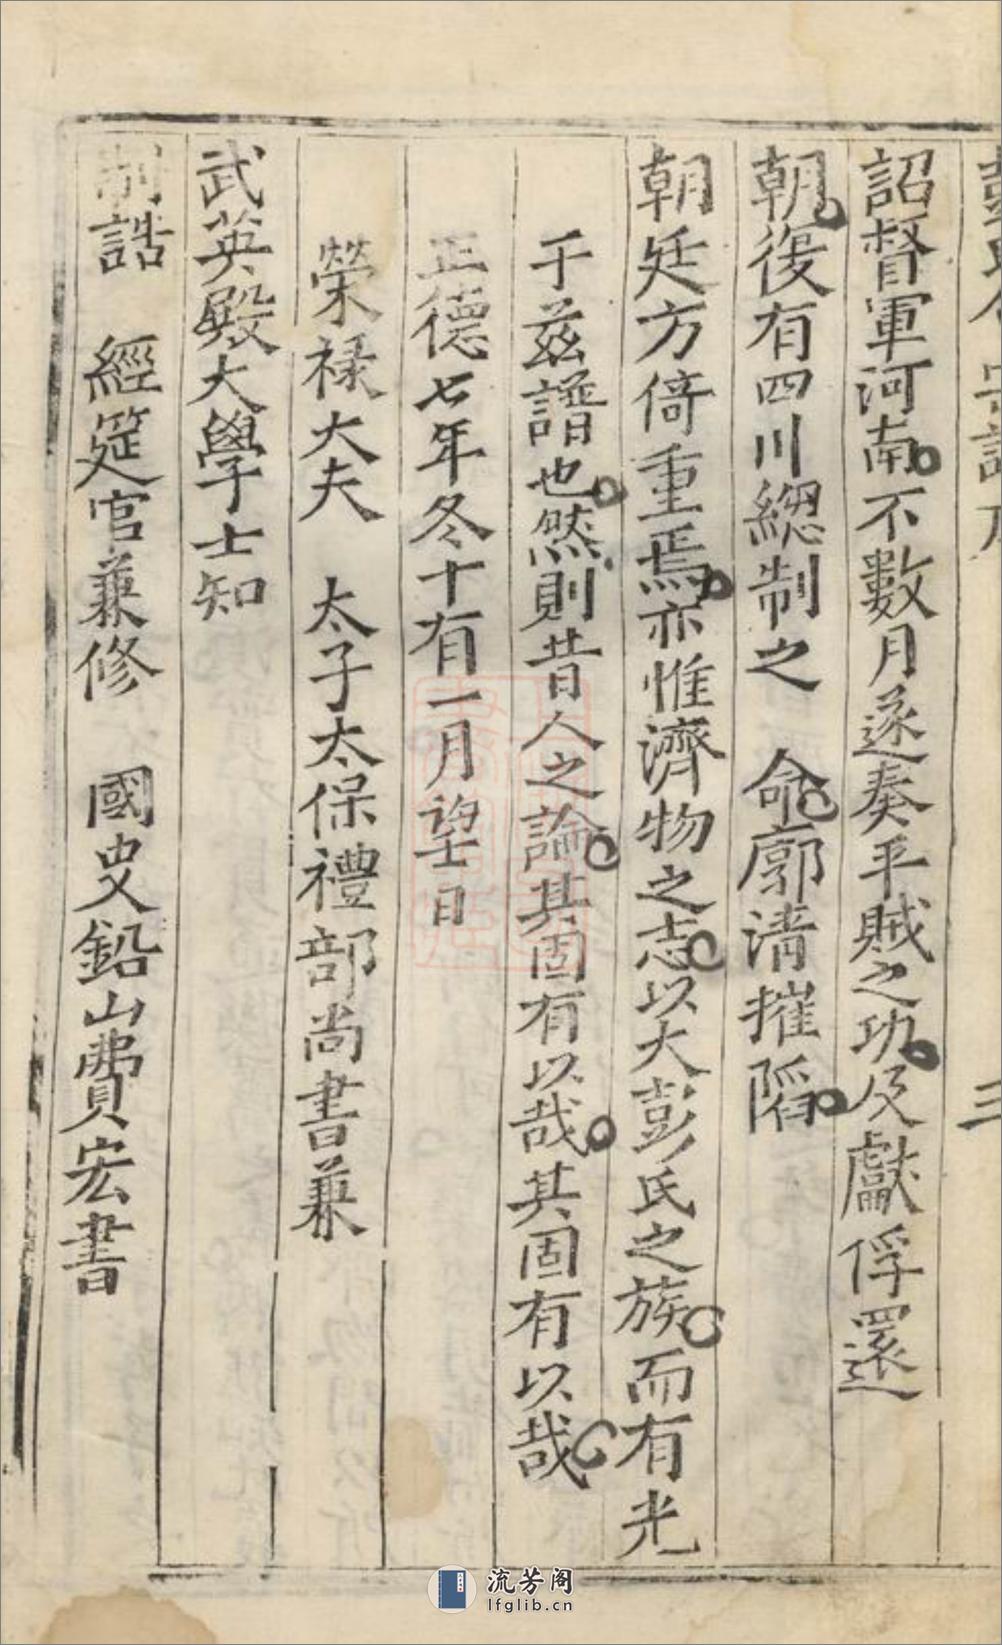 三
詔督軍河南不數月遂奏平賊之功及獻俘還
朝復有四川總制之　命廓清摧陷
朝廷方倚重焉亦惟濟物之志以大彭氏之族而有光
于茲譜也然則昔人之論其固有以哉其固有以哉
正德七年冬十有一月望日
榮祿大夫　太子太保禮部尚書兼
武英殿大學士知
制誥　經筵官兼修　國史鉛山費宏書
流芳阁
lfglib.cn